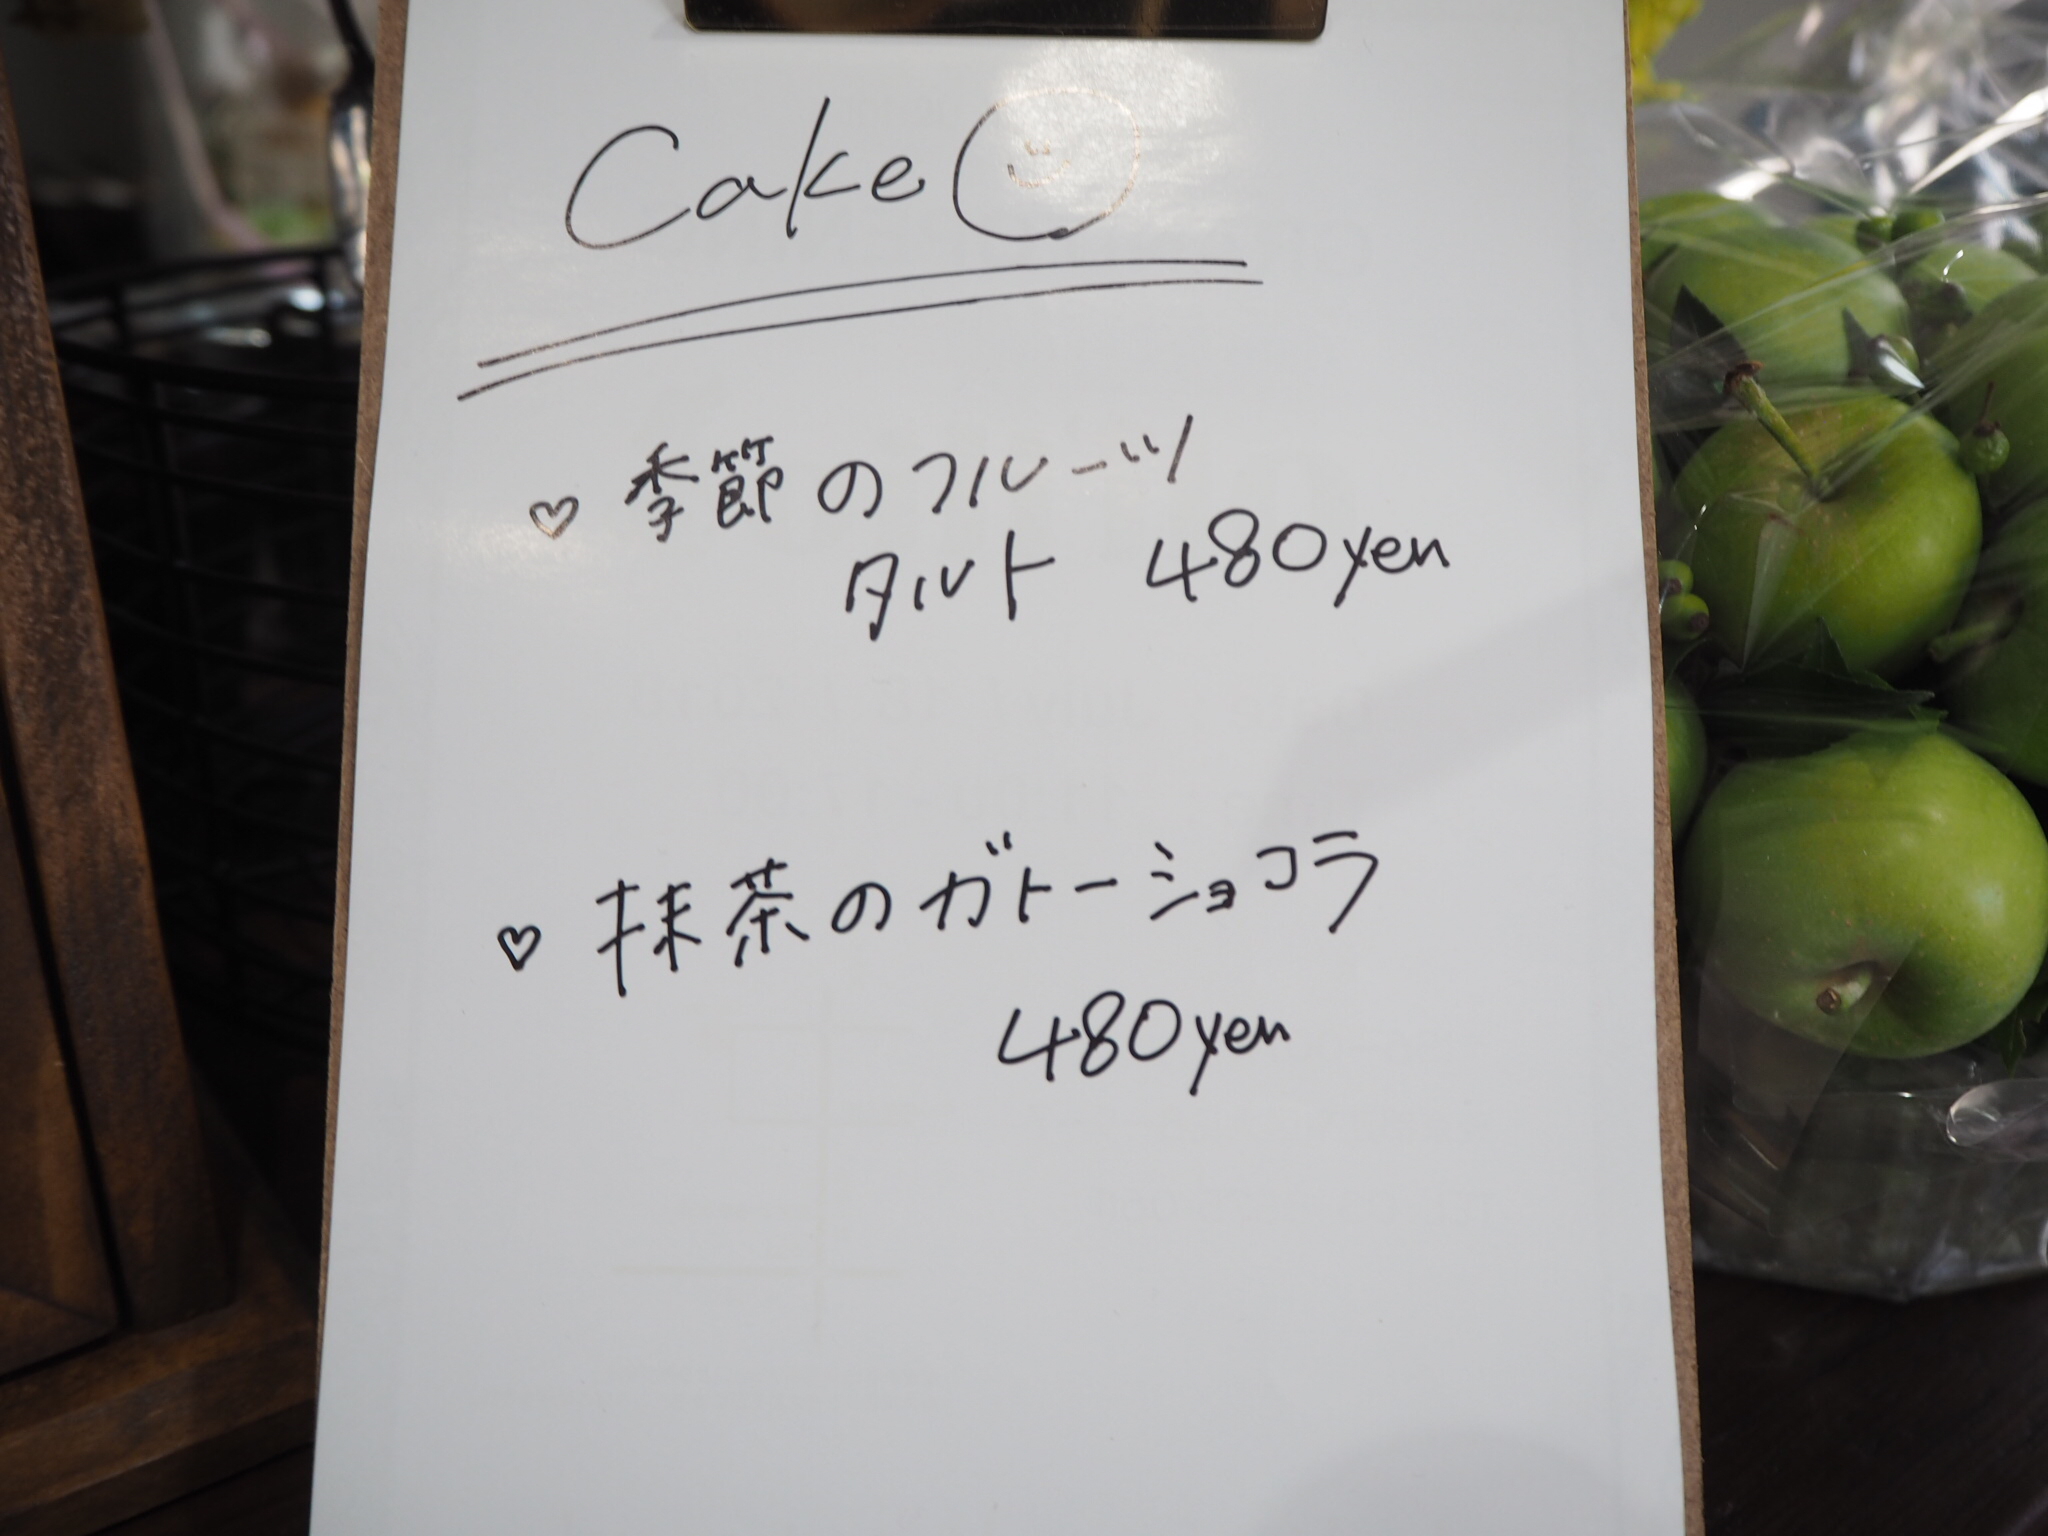 Cake
♡ 季節のフルーツ
タルト 480yen
♡ 抹茶のガトーショコラ
480yen